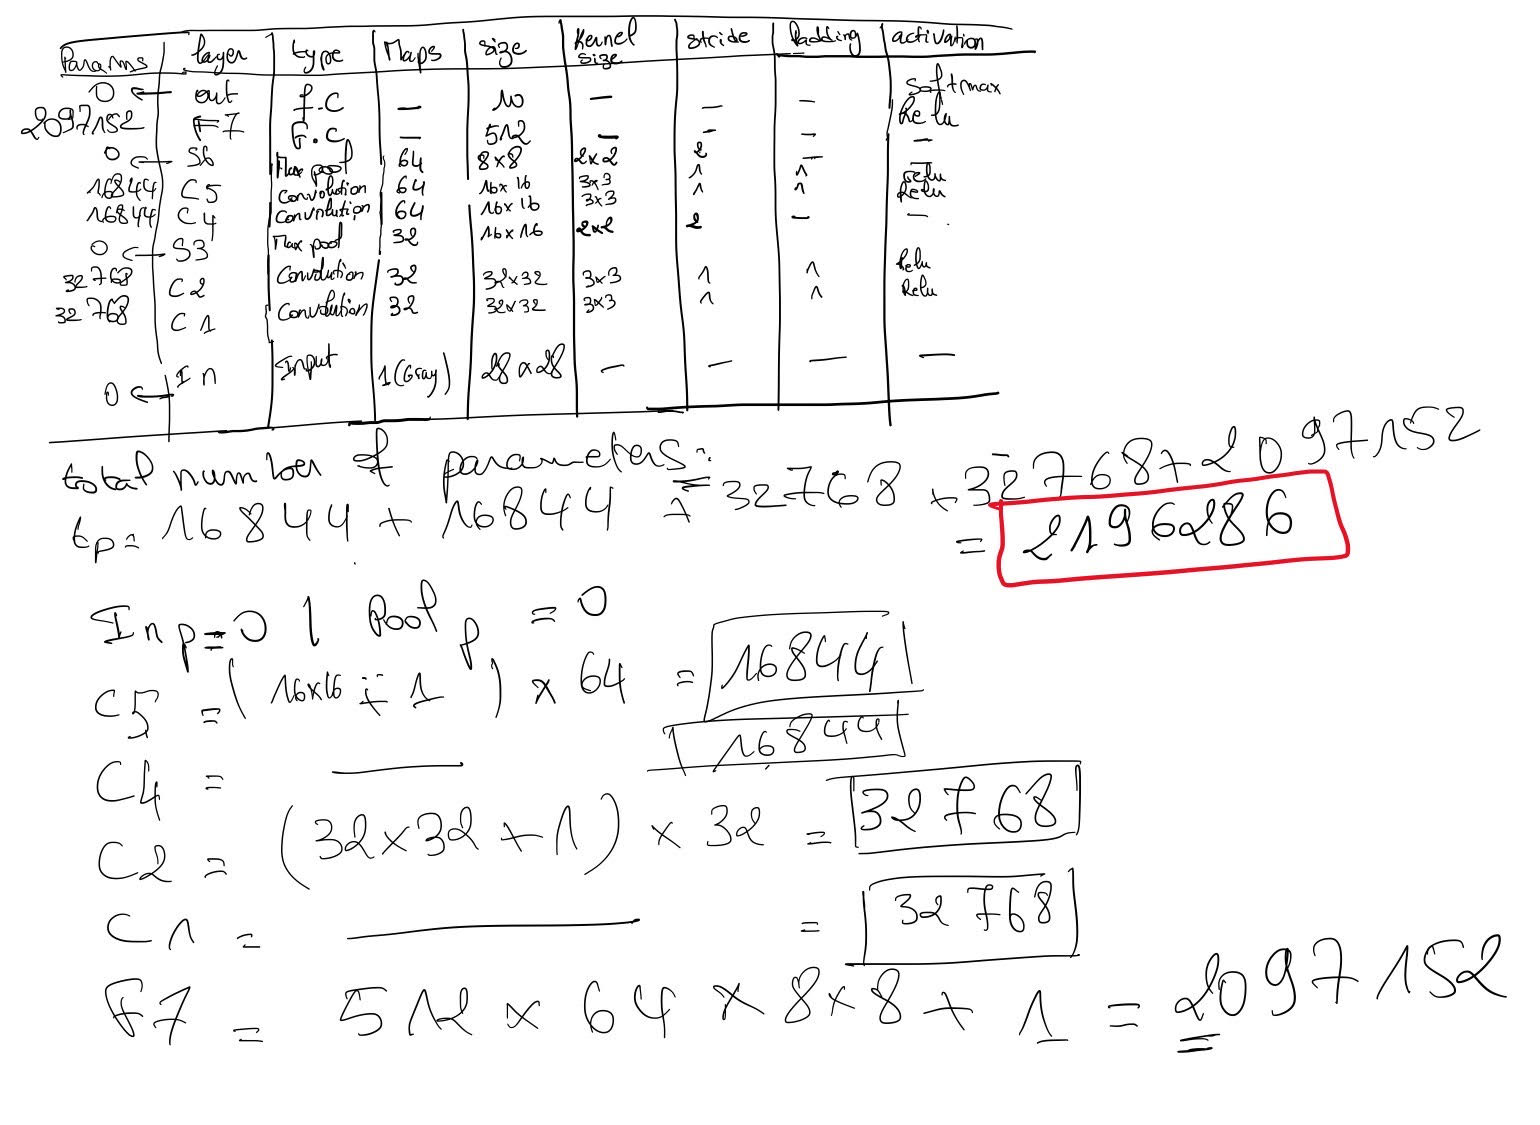 Params layer type Maps size Kernel size stride Padding activation
0 ← out f.c — 10 — — — softmax
2097152 ← F7 F.c — 512 — — — Relu
0 ← S6 Max pool 64 8x8 2x2 2 — —
16844 C5 Convolution 64 16x16 3x3 1 1 relu
16844 C4 Convolution 64 16x16 3x3 1 1 Relu
0 ← S3 Max pool 32 16x16 2x2 2 — —
32768 C2 Convolution 32 32x32 3x3 1 1 Relu
32768 C1 Convolution 32 32x32 3x3 1 1 Relu
0 ← In Input 1(Gray) 28x28 — — — —
total number of parameters:
tp= 16844 + 16844 + 32768 + 32768 + 2097152
= 2196286
Inp=0 | Pool p = 0
C5 = (16x16 + 1) x 64 = 16844
C4 = — 16844
C2 = (32x32 + 1) x 32 = 32768
C1 = — = 32768
F7 = 512 x 64 x 8x8 + 1 = 2097152